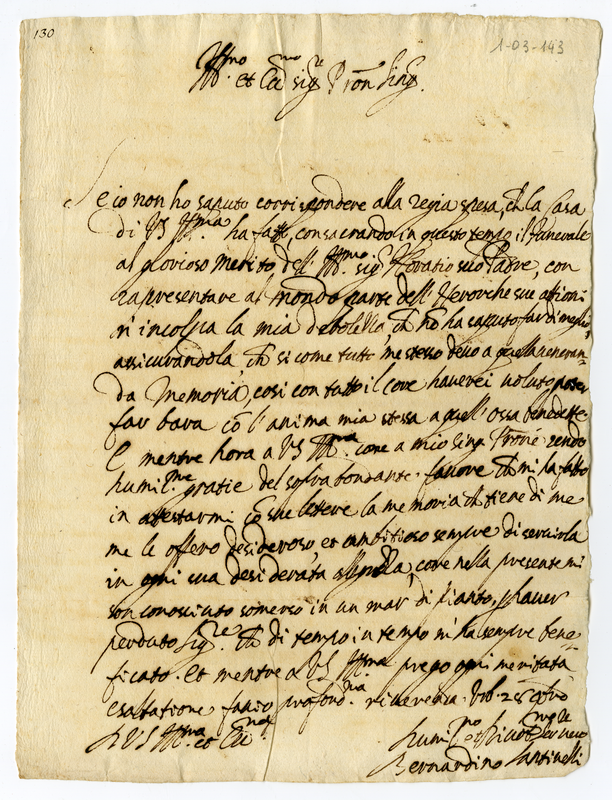 130
1-03-143
Ill.mo et Ecc.mo sig.re P.ron Sing.
Se io non ho saputo corrispondere alla regia spesa, ch la Casa
di VS Ill.ma ha fatto, consacrando in questo tempo il funerale
al glorioso merito dell' Ill.mo sig. Horatio suo Padre, con
rapresentare al mondo parte dell' Heroiche sue attioni
n' incolpa la mia debolezza, ch nō ha saputo far di meglio,
assicurandola, ch si come tutto me stesso devo a quella veneran=
da Memoria, così con tutto il core haverei voluto poter
far bara cō l'anima mia stessa a quell'ossa benedette.
E mentre hora a VS Ill.ma come a mio Sing. Prone rendo
humil.me gratie del sopra bondante favore ch mi ha fatto
in attestarmi cō sue lettere la memoria ch tiene di me
me le offero desideroso, et ambitioso sempre di servirla
in ogni sua desiderata allegrezza, come nella presente mi
son conosciuto somerso in un mar di pianto, p haver
perduto Sig.re ch di tempo in tempo m'ha sempre bene=
ficato. Et mentre a VS Ill.ma prego ogni meritata
esaltatione facio profond.ma riverenza. Urb. 28
D VS Ill.ma et Ecc.ma
humil.mo et
Bernardino Santinelli